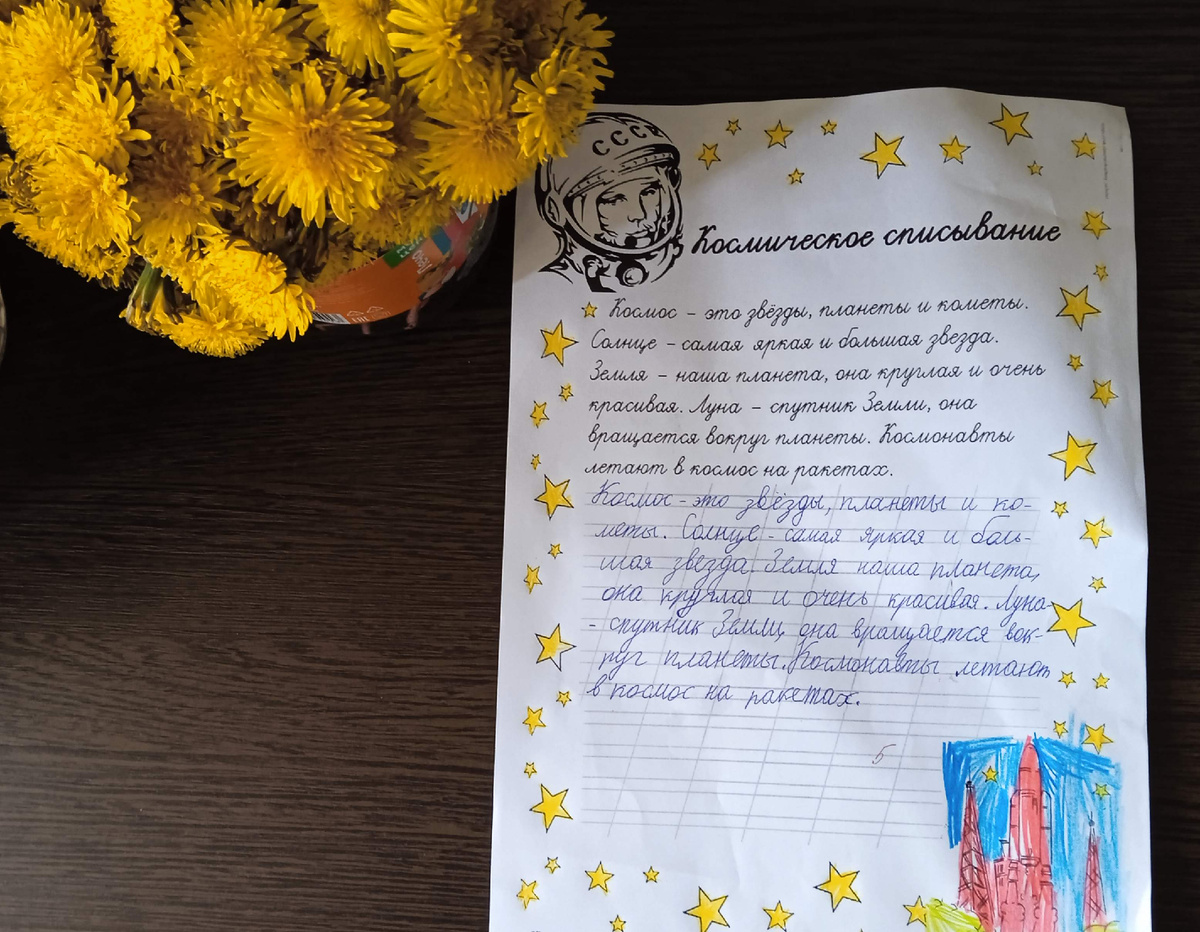 СССР
Космическое списывание
Космос – это звёзды, планеты и кометы.
Солнце – самая яркая и большая звезда.
Земля – наша планета, она круглая и очень
красивая. Луна – спутник Земли, она
вращается вокруг планеты. Космонавты
летают в космос на ракетах.
Космос - это звёзды, планеты и ко-
меты. Солнце - самая яркая и боль-
шая звезда. Земля наша планета,
она круглая и очень красивая. Луна-
- спутник Земли, она вращается вок-
руг планеты. Космонавты летают
в космос на ракетах.
5